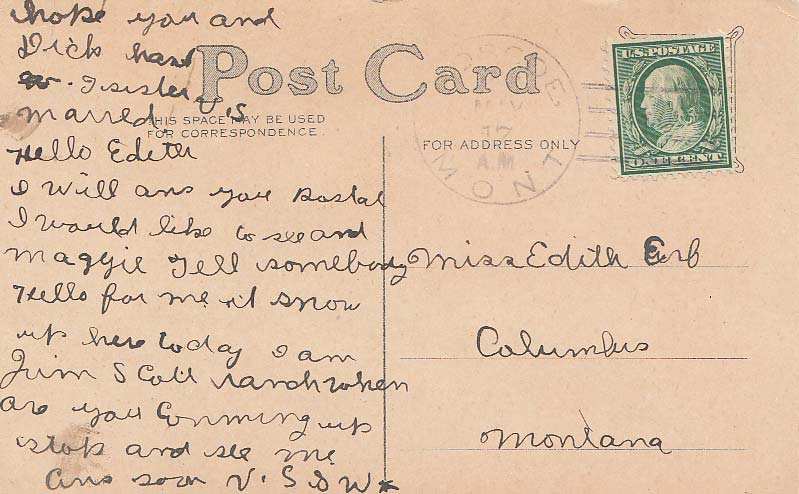 I hope you and
Dick hant
I sister
marred. V. S
Post Card
THIS SPACE MAY BE USED
FOR CORRESPONDENCE.
FOR ADDRESS ONLY
U.S. POSTAGE
ONE CENT
MAY
17
A.M
MONT
Hello Edith
I will ans you Postal
I would like to see and
Maggie Tell somebody
Hello for me it snow
up here today I am
Jim Scott ranch when
are you Comming up
stop and see me
Ans soon V. S D W
Miss Edith Erb
Columbus
Montana